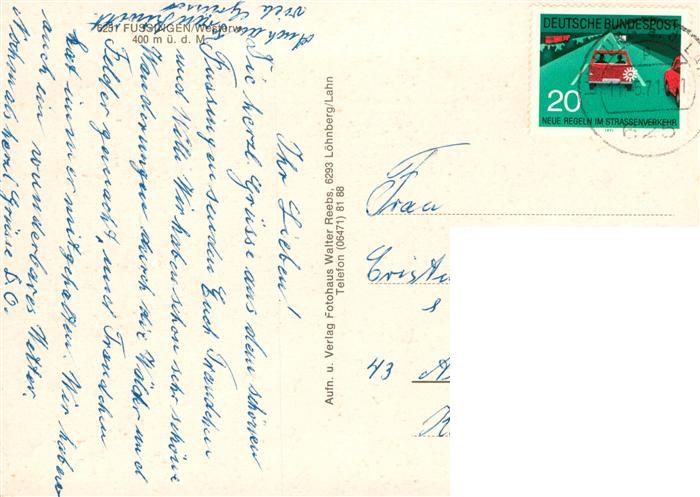 6251 FUSSINGEN/Westerw.
400 m ü. d. M.
Ihr Lieben!
Die herzl. Grüsse aus dem schönen
Fussingen senden Euch Traudchen
und Willi. Wir haben schon sehr schöne
Wanderungen durch die Wälder und
Felder gemacht, und Traudchen
hat immer mitgehalten. Wir haben
auch ein wunderbares Wetter.
Nochmals herzl. Grüsse d. O.
Auch an
viele Grüsse
Aufn. u. Verlag Fotohaus Walter Reebs, 6293 Löhnberg/Lahn
Telefon (06471) 81 88
DEUTSCHE BUNDESPOST
20
NEUE REGELN IM STRASSENVERKEHR
1971
625
Frau
43